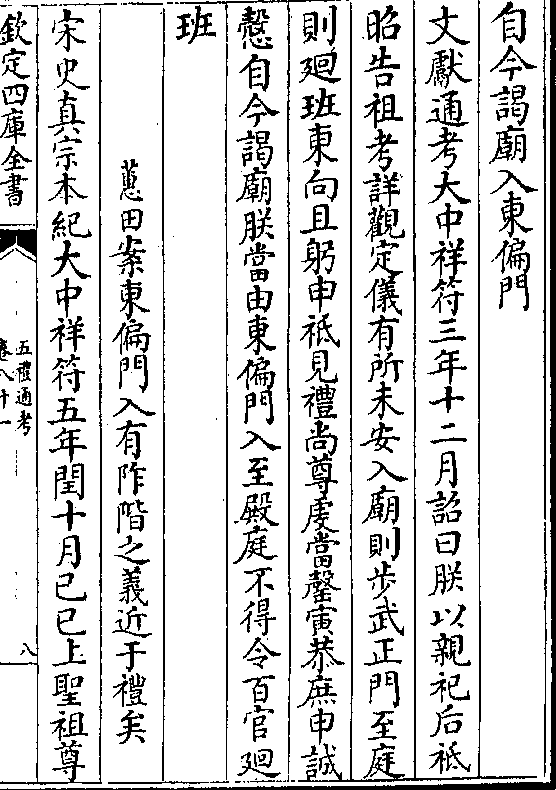 自今謁廟入東偏門
文獻通考大中祥符三年十二月詔曰朕以親祀后祗
昭告祖考詳觀定儀有所未安入廟則步武正門至庭
則廻班東向且躬申祗見禮尚尊虔當罄寅恭庶申誠
慤自今謁廟朕當由東偏門入至殿庭不得令百官廻
班
蕙田案東偏門入有阼階之義近于禮矣
宋史真宗本紀大中祥符五年閏十月己巳上聖祖尊
欽定四庫全書
五禮通考
卷八十一
八